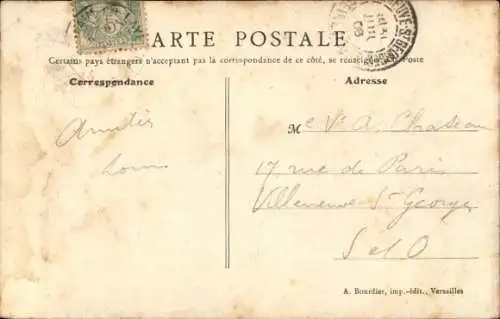 CARTE POSTALE
Certains pays étrangers n'acceptant pas la correspondance de ce côté, se renseigner Poste
Correspondance
Adresse
Amitiés
Louis
Me Ve A. Chateau
17 rue de Paris
Villeneuve St Georges
S et O
A. Bourdier, imp.-édit., Versailles